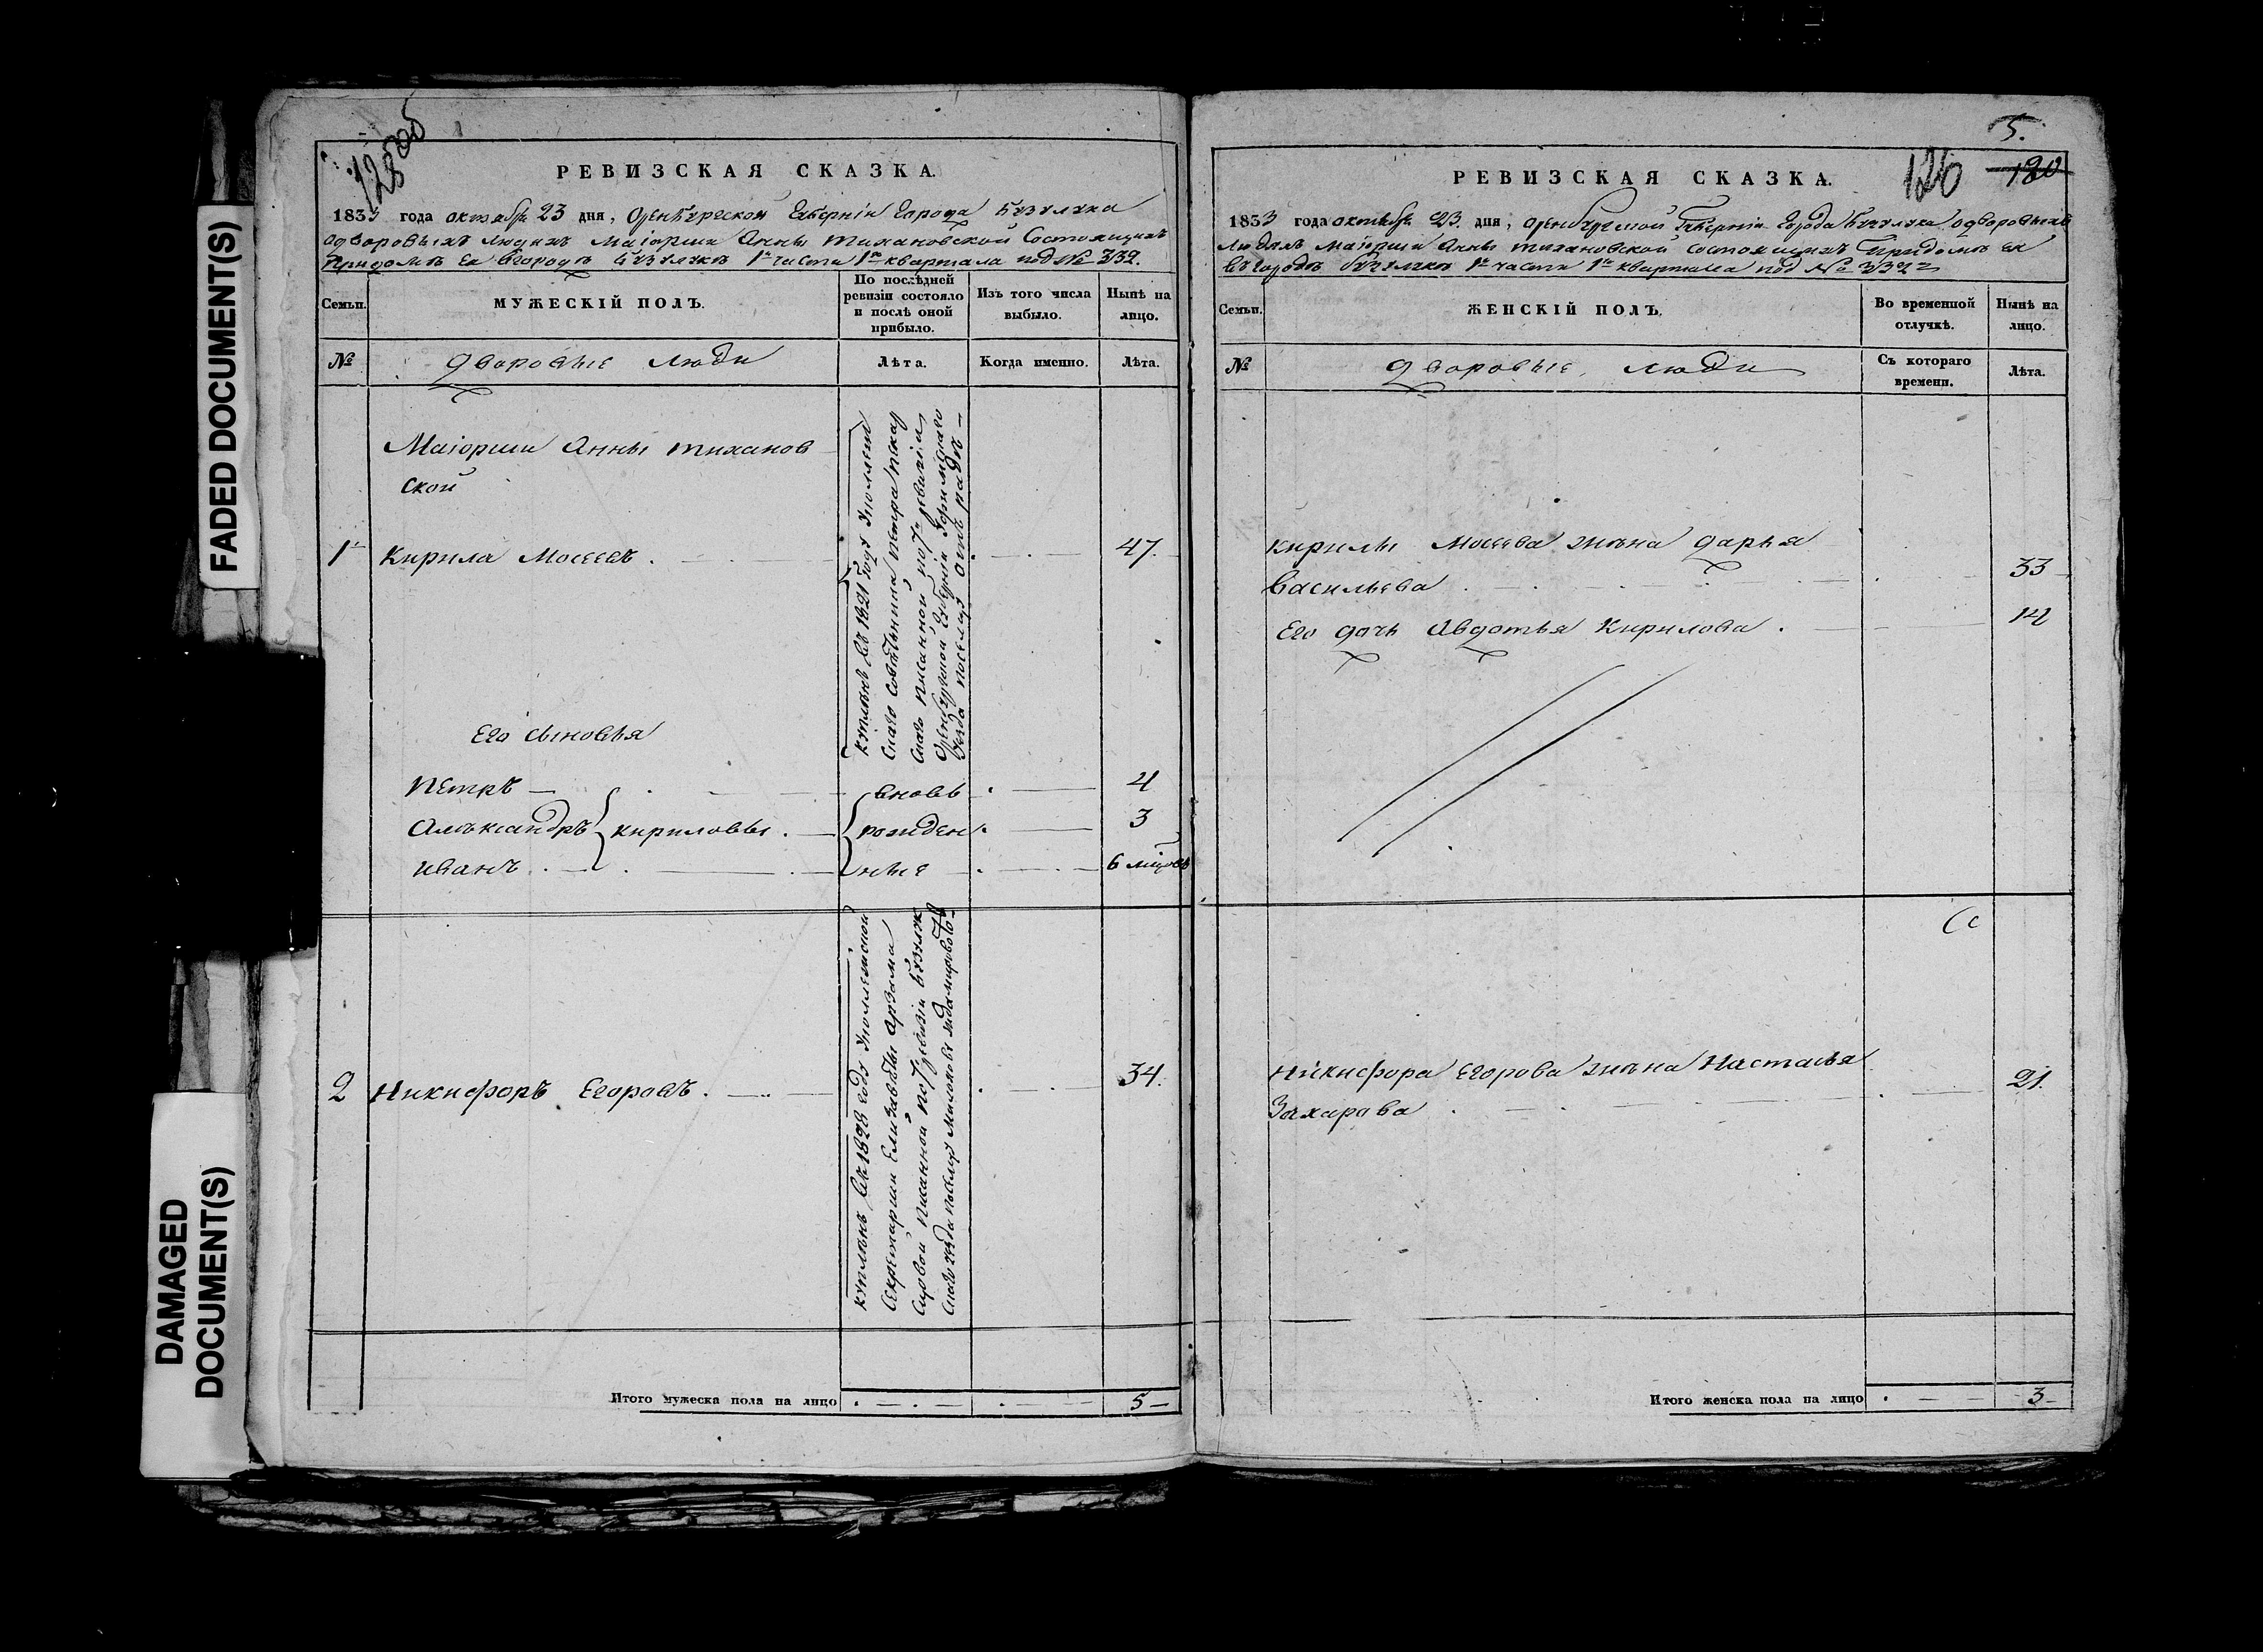 FADED DOCUMENT(S)
DAMAGED
DOCUMENT(S)
125 об
РЕВИЗСКАЯ СКАЗКА.
1833 года октября 23 дня, Оренбургской Губерніи Города Бузулука
о дворовыхъ людяхъ Маіорши Анны Тихановской Состоящихъ
При домѣ Ея в городѣ Бузулукѣ 1й части 1го квартала под № 332.
Семьи.
МУЖЕСКІЙ ПОЛЪ.
По послѣдней
ревизіи состояло
и послѣ оной
прибыло.
Изъ того числа
выбыло.
Нынѣ на
лицо.
№
дворовые люди
Лѣта.
Когда именно.
Лѣта.
Маіорши Анны Тиханов
ской
1й Кирила Мосеевъ . 47.
купленъ въ 1821 году
Его сыновья
Петръ — вновь 4
Александръ кириловы . рожден 3
Иванъ . ные 6 міцовъ
2 Никифоръ Егоровъ . 34.
купленъ въ 1828 году
Секретарши Елизаветы
Итого мужеска пола на лицо 5
5.
126 180
РЕВИЗСКАЯ СКАЗКА.
1833 года октября 23. дня, Оренбургской Губерніи Города Бузулука о дворовыхъ
людяхъ Маіорши Анны Тихановской состоящихъ При домѣ ея
въ городѣ бузулукѣ 1й части 1го квартала под № 332
Семьи.
ЖЕНСКІЙ ПОЛЪ.
Во временной
отлучкѣ.
Нынѣ на
лицо.
№
дворовые люди
Съ котораго
времени.
Лѣта.
Кирилы Мосеева жѣна Дарья
Васильева . 33
Его дочь Авдотья Кирилова . 14
Никифора Егорова жѣна Настасья
Захарова . 21.
Итого женска пола на лицо 3